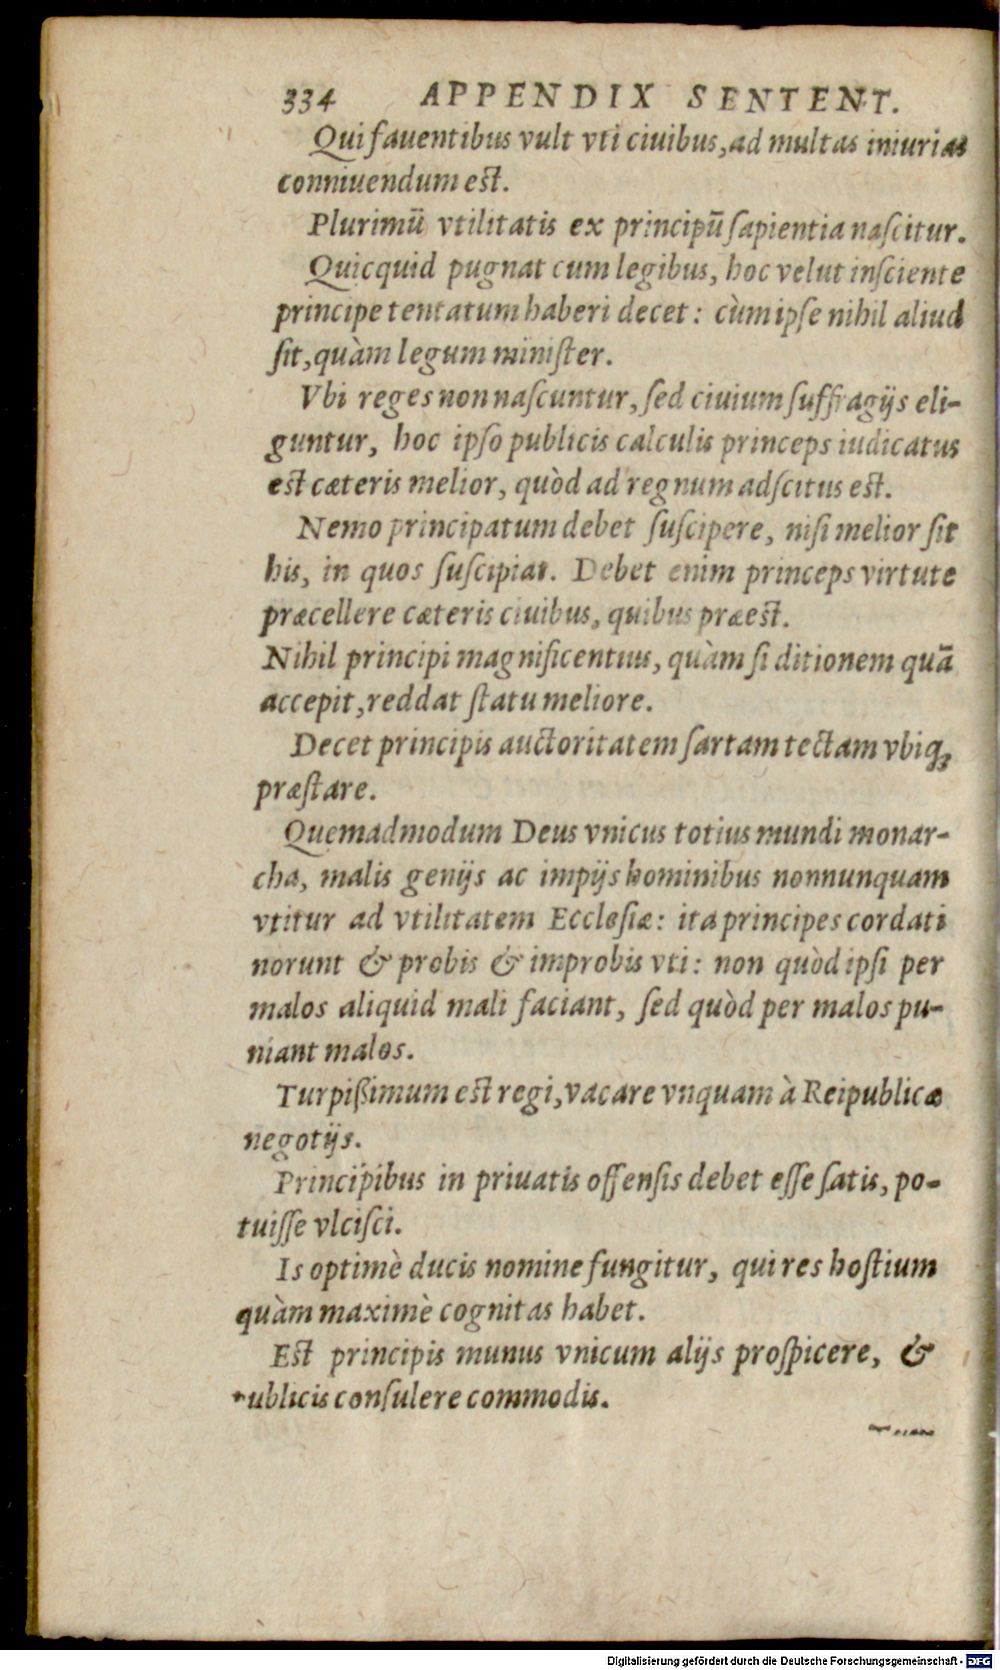 334 APPENDIX SENTENT.
Qui fauentibus vult vti ciuibus, ad multas iniurias
conniuendum est.
Plurimū vtilitatis ex principū sapientia nascitur.
Quicquid pugnat cum legibus, hoc velut insciente
principe tentatum haberi decet: cùm ipse nihil aliud
sit, quàm legum minister.
Vbi reges non nascuntur, sed ciuium suffragijs eli-
guntur, hoc ipso publicis calculis princeps iudicatus
est cæteris melior, quòd ad regnum adscitus est.
Nemo principatum debet suscipere, nisi melior sit
his, in quos suscipiat. Debet enim princeps virtute
præcellere cæteris ciuibus, quibus præest.
Nihil principi magnificentius, quàm si ditionem quā
accepit, reddat statu meliore.
Decet principis auctoritatem sartam tectam vbiq;
præstare.
Quemadmodum Deus vnicus totius mundi monar-
cha, malis genijs ac impijs hominibus nonnunquam
vtitur ad vtilitatem Ecclesiæ: ita principes cordati
norunt & probis & improbis vti: non quòd ipsi per
malos aliquid mali faciant, sed quòd per malos pu-
niant malos.
Turpißimum est regi, vacare vnquam à Reipublicæ
negotijs.
Principibus in priuatis offensis debet esse satis, po-
tuisse vlcisci.
Is optimè ducis nomine fungitur, qui res hostium
quàm maximè cognitas habet.
Est principis munus vnicum alijs prospicere, &
publicis consulere commodis.
Digitalisierung gefördert durch die Deutsche Forschungsgemeinschaft - DFG